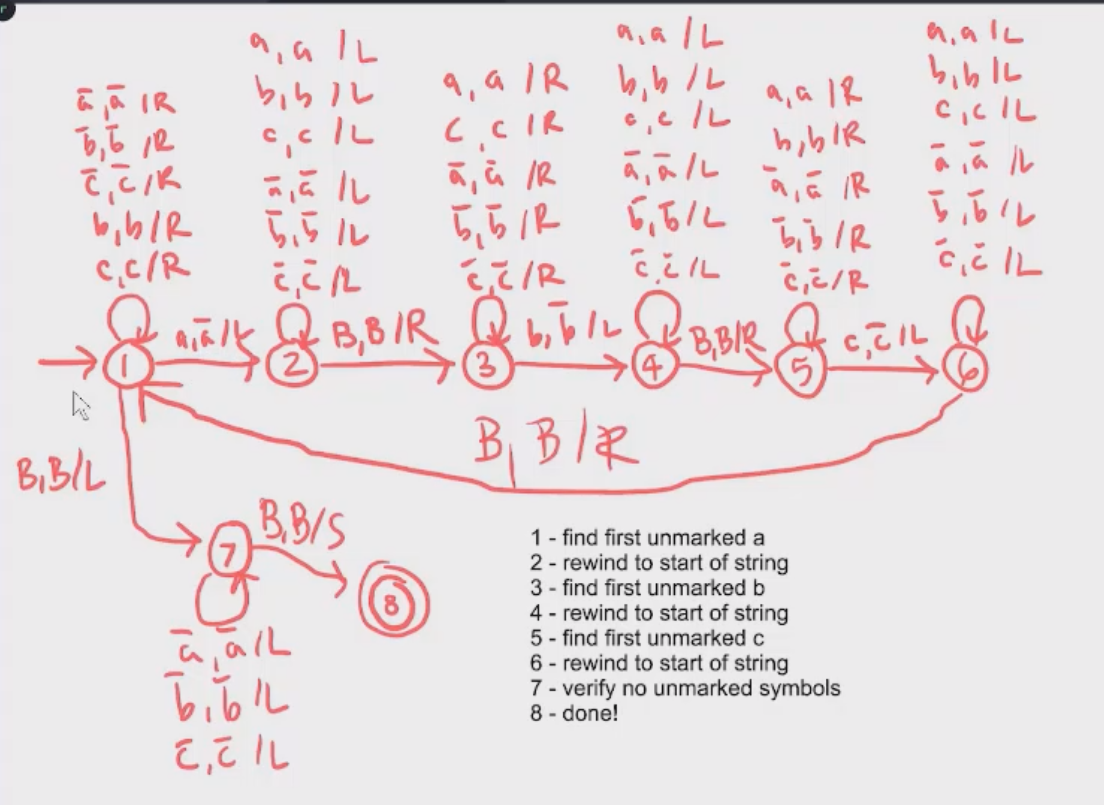 r
ā,ā/R
b̄,b̄/R
c̄,c̄/R
b,b/R
c,c/R
a,a/L
b,b/L
c,c/L
ā,ā/L
b̄,b̄/L
c̄,c̄/L
a,a/R
c,c/R
ā,ā/R
b̄,b̄/R
c̄,c̄/R
a,a/L
b,b/L
c,c/L
ā,ā/L
b̄,b̄/L
c̄,c̄/L
a,a/R
b,b/R
ā,ā/R
b̄,b̄/R
c̄,c̄/R
a,a/L
b,b/L
c,c/L
ā,ā/L
b̄,b̄/L
c̄,c̄/L
1
a,ā/L
2
B,B/R
3
b,b̄/L
4
B,B/R
5
c,c̄/L
6
B,B/R
B,B/L
7
B,B/S
8
ā,ā/L
b̄,b̄/L
c̄,c̄/L
1 - find first unmarked a
2 - rewind to start of string
3 - find first unmarked b
4 - rewind to start of string
5 - find first unmarked c
6 - rewind to start of string
7 - verify no unmarked symbols
8 - done!